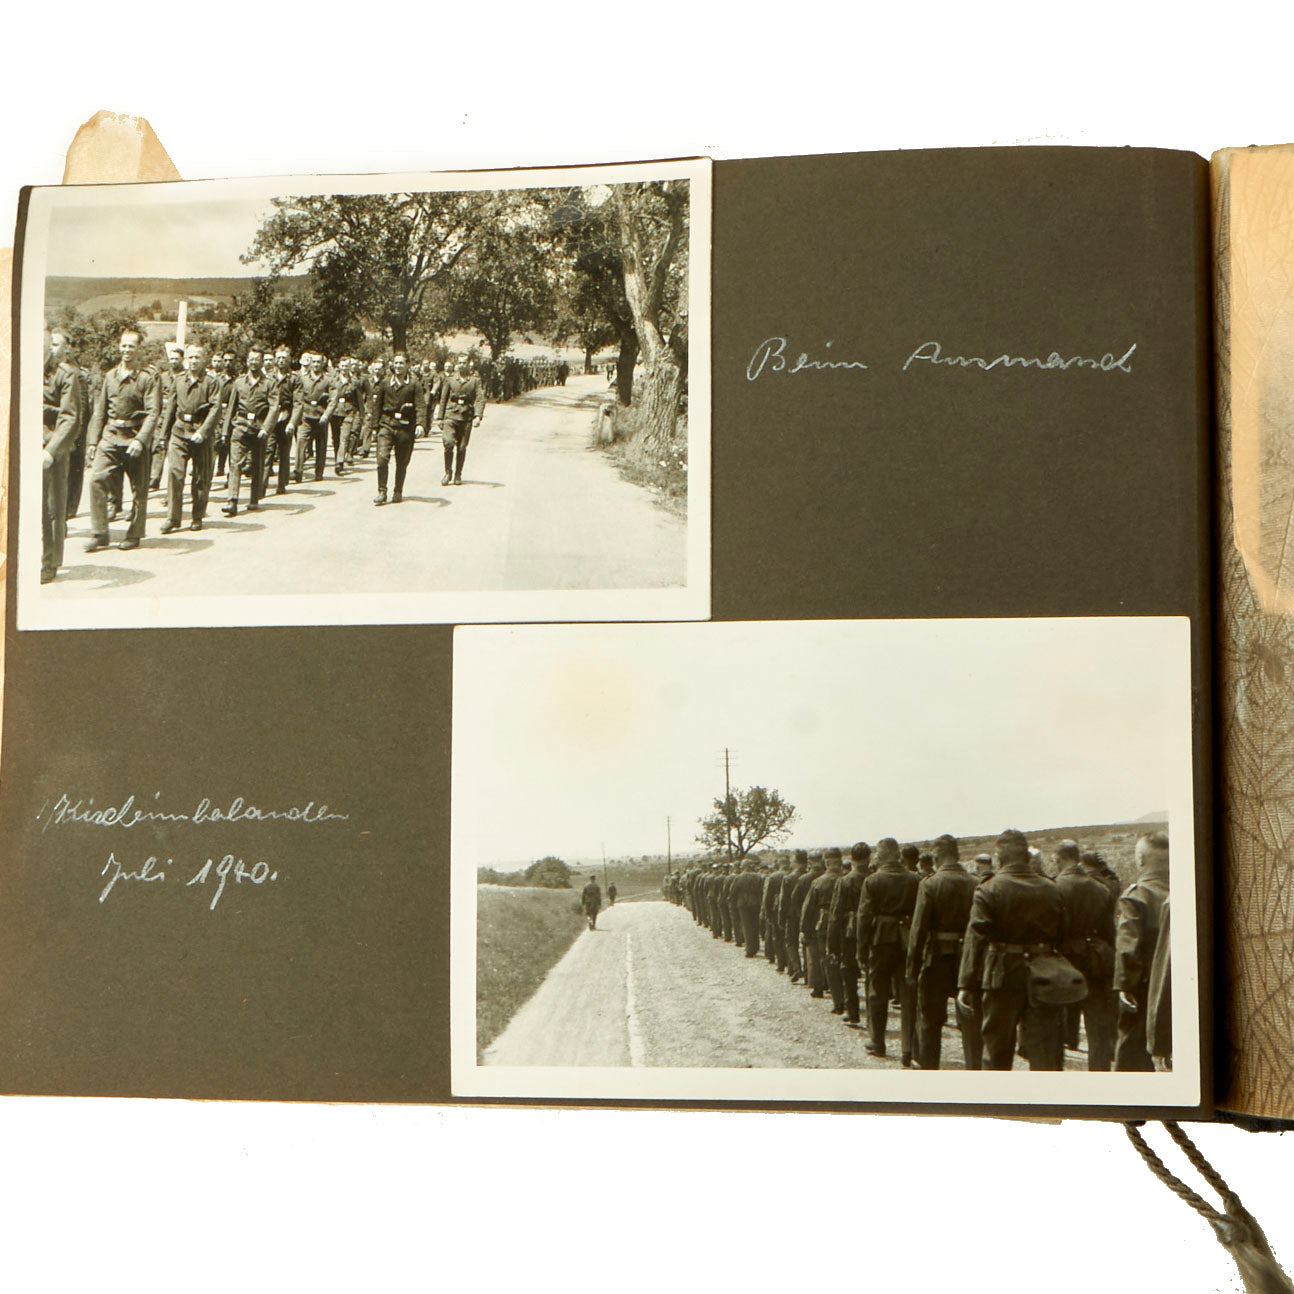 Beim Ausmarsch
Kircheimbolanden
Juli 1940.